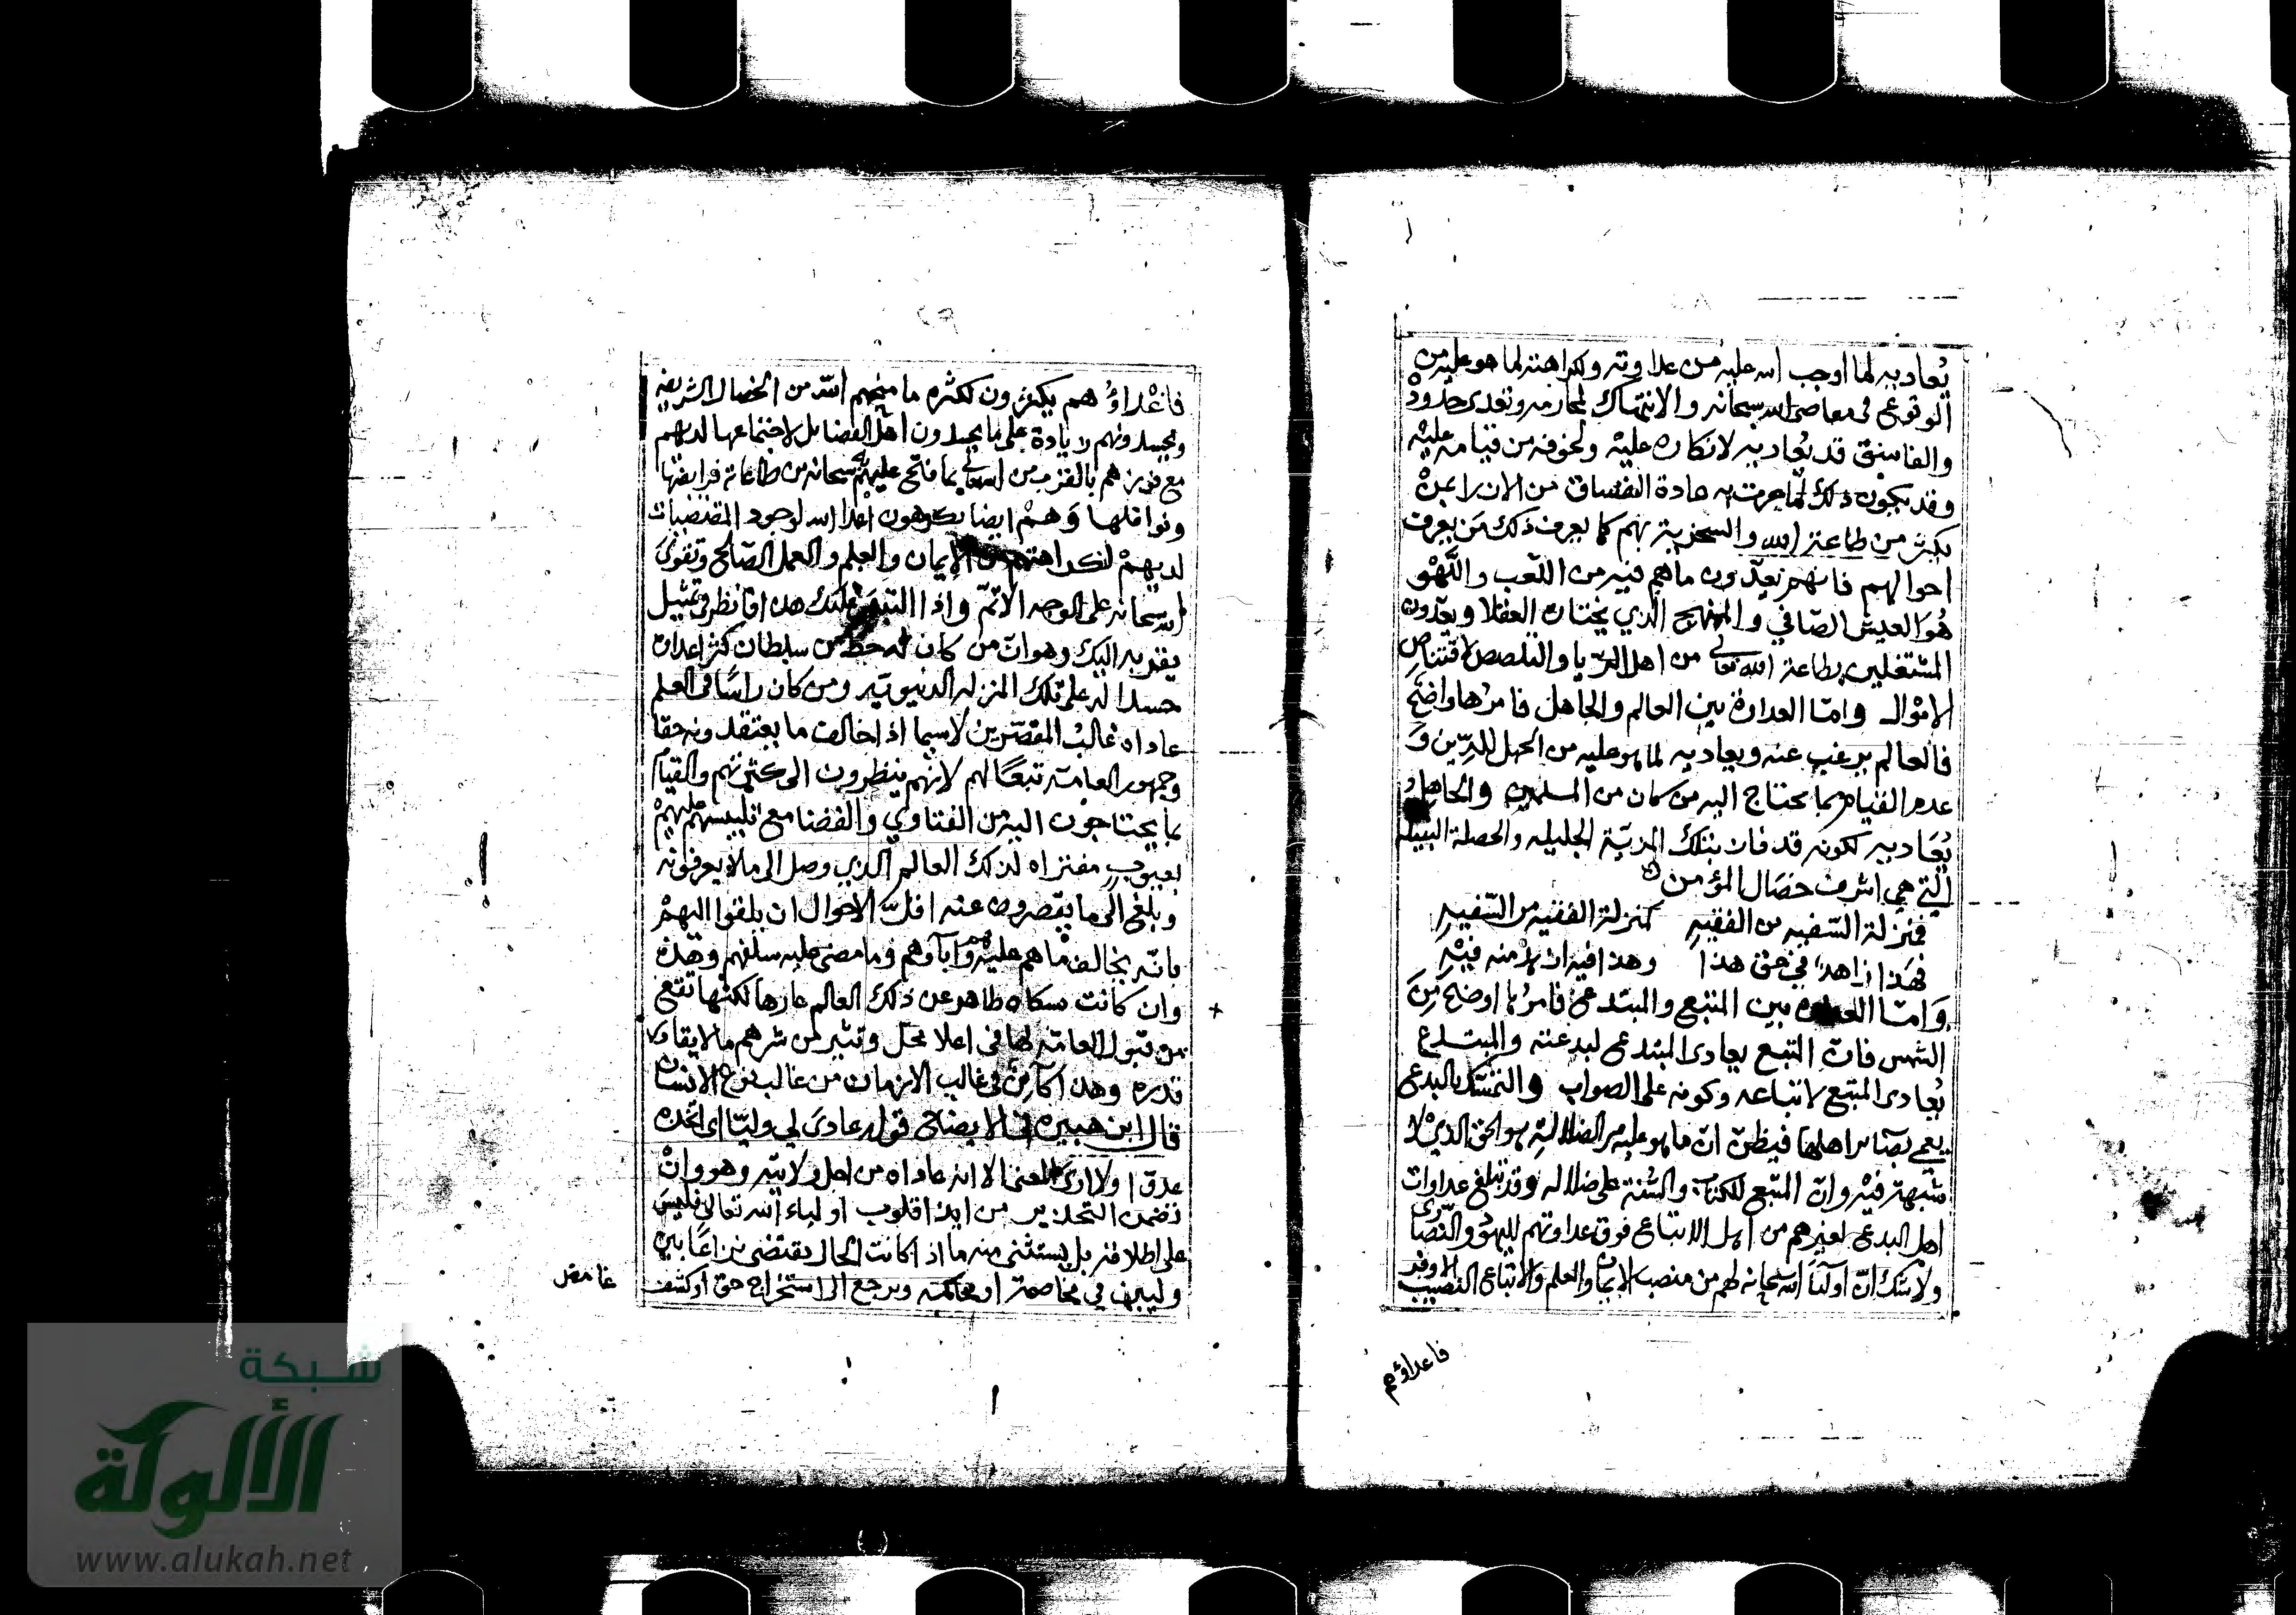 يُعاديه لما اوجب الله عليه من عداوته ولكراهته لما هو عليه من
الوقوع في معاصي الله سبحانه والانتهاك لمحارمه وتعدي حدوده
والفاسق قد يُعاديه لانكاره عليه ولخوفه من قيامه عليه
وقد يكون ذلك لما جرت به عادة الفساق من الازراء بمن
يكثر من طاعة الله والسخرية بهم كما يعرف ذلك مَن يعرف
احوالهم فانهم يعدّون ما هم فيه من اللعب واللهو
هُوَ العيش الصافي والمنهج الذي يختاره العقلا ويعدّون
المشتغلين بطاعة الله تعالى من اهل الريا والتلصص لاقتناص
الاموال واما العداوة بين العالم والجاهل فامرها واضح
فالعالم يرغب عنه ويعاديه لما هو عليه من الجهل للدّين وَ
عدم القيام بما يحتاج اليه من كان من المسلمين والجاهل
يُعاديه لكونه قد فاز بتلك المزيّة الجليله والخصلة النبيلة
التي هي اشرف خصال المؤمن
فمنزلة السّفيه من الفقيهِ كمنزلة الفقيه من السّفيهِ
فهَذا زاهد في حق هذا وهذا فيه ازهد منه فيهِ
وَامّا العداوة بين المتبع والمبتدع فامرُها اوضح مِنَ
الشمس فانّ المتبع يعادي المبتدع لبدعته والمبتدع
يُعادي المتبع لاتباعه وكونه على الصواب والتمسّك بالبدع
يعمي بصائر اهلها فيظنّ انّ ما هو عليه من الضلالة هو الحق الذي لا
شبهة فيه وانّ المتبع للكتاب والسُّنة على ضلاله وقد تبلغ عداوات
اهل البدع لغيرهم من اهل الاتباع فوق عداوتهم لليهود والنصارى
ولا شك انّ اوليآ الله سبحانه لهم من منصب الايمان والعلم والاتباع النصيب الاوفر
فاعداؤهم
فاعداؤُهم يكثرون لكثره ما منحهم الله من الخصال الشريفه
ويحسدونهم زيادة على ما يحسدون اهل الفضايل لاجتماعها لديهم
مع فوزهم بالقرب من الله تعالى بما فتح عليهم به سبحانه من طاعاته فرايضها
ونوافلها وَهمْ ايضا يكرهون اعدا الله لوجود المقتضيات
لديهمْ لكراهتهم من الايمان والعلم والعمل الصّالح وتقوى
الله سبحانه على الوجه الاتمّ واذا التبس عليك هذا فانظر في تمثيل
يقربه اليك وهو انّ من كان له حظ من سلطان كثر اعداؤه
حسدا له على تلك المنزله الدنيويّه ومن كان راسًا في العلم
عاداه غالبُ المقصّرين لاسيما اذا خالف ما يعتقدونه حقا
وجمهور العامّة تبعًا لهم لانّهم ينظرون الى كثرتهم والقيام
بما يحتاجون اليه من الفتاوي والقضا مع تلبيسهم عليهم
بعيوب مفتراه لذلك العالم الذي وصل الى ما لا يعرفونه
وبلغ الى ما يقصرون عنه اقلّ الاحوال ان يلقوا اليهمْ
بانّه يخالف ما هم عليه وآباؤهم وما مضى عليه سلفهم وهَذه
وان كانت شكاه ظاهر عن ذلك العالم عارها لكنّها تقع
من قبول العامّه لها في اعلا محل وتثير من شرهم ما لا يقادر
قدره وهذا كآين في غالب الازمان من غالب نوع الانسان
قال ابن هبيره في الايضاح قوله عادى لي وليّا اي اتخذه
عدوّا ولا ارى المعنى الا انه عاداه من اجل ولايته وهو وانْ
تضمن التحذير من ايذا قلوب اولياء الله تعالى فليسَ
على اطلاقه بل يستثنى منه ما اذا كانت الحال يقتضي نزاعًا بين
وليين في مخاصمة او محاكمة ويرجع الى استخراج حق او كشف
غامض
شبكة
الألوكة
www.alukah.net